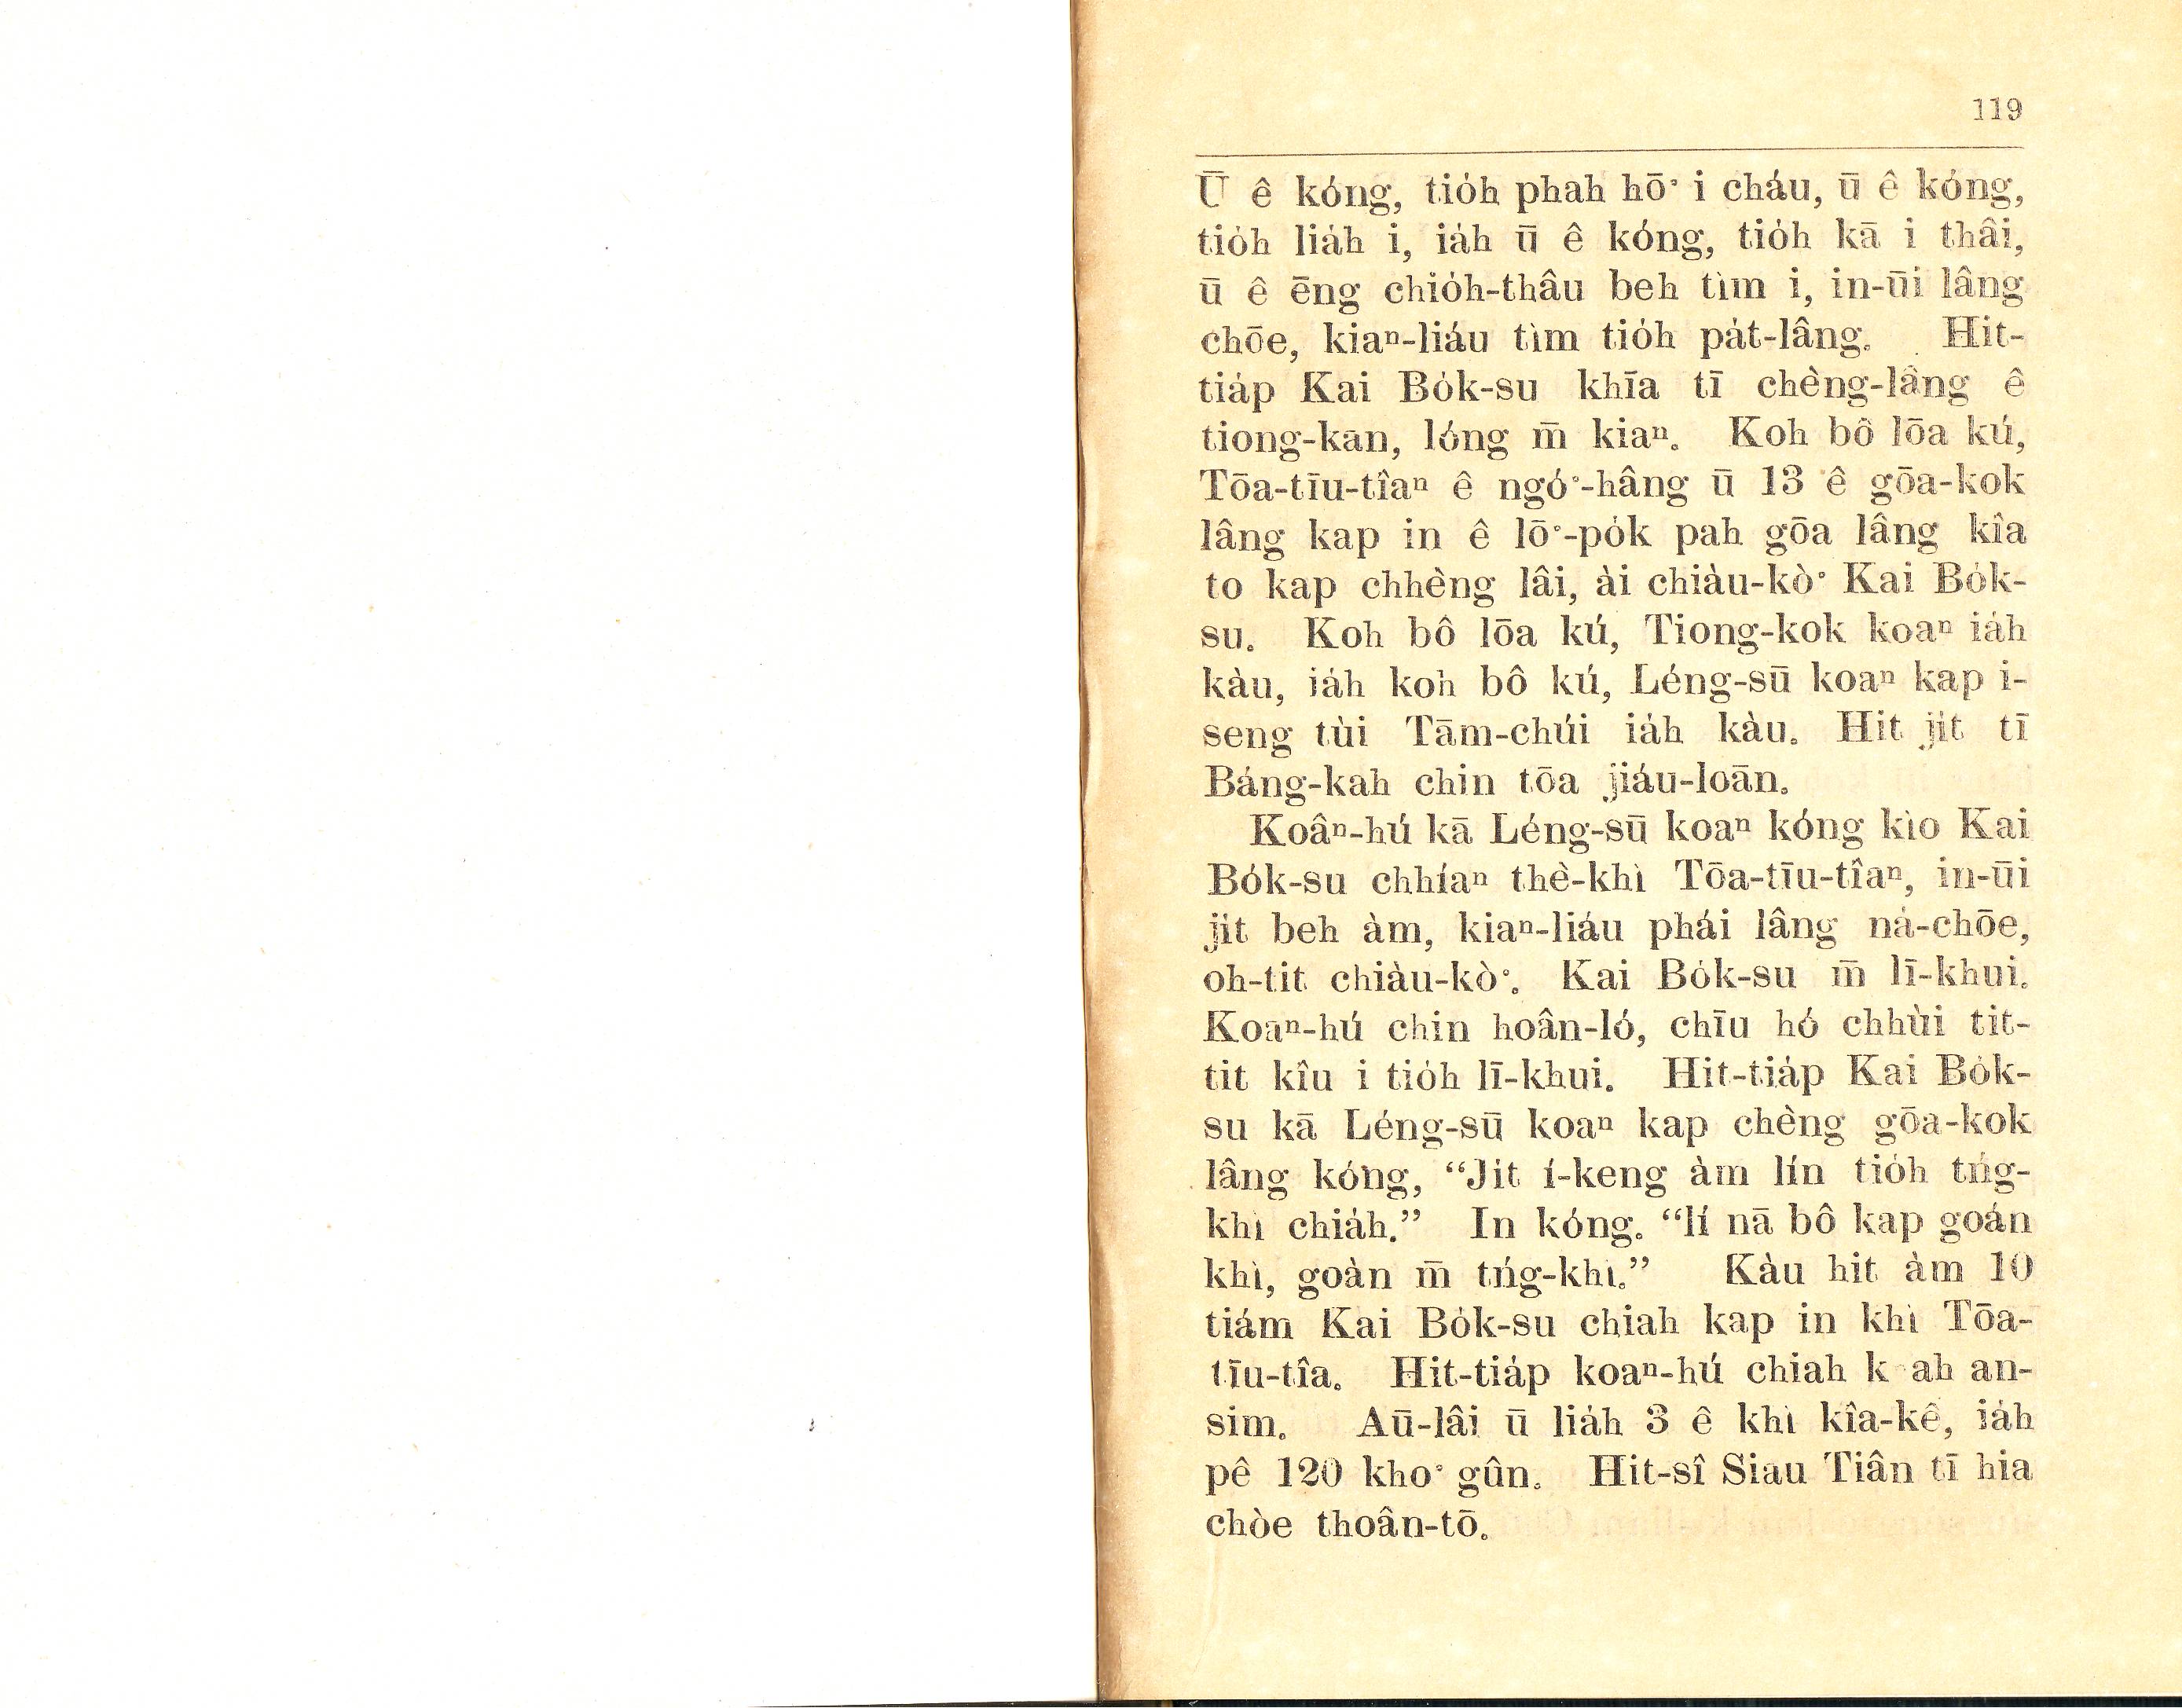 119
Ū ê kóng, tio̍h phah hō͘ i cháu, ū ê kóng,
tio̍h lia̍h i, ia̍h ū ê kóng, tio̍h kā i thâi,
ū ê ēng chio̍h-thâu beh tìm i, in-ūi lâng
chōe, kiaⁿ-liáu tìm tio̍h pa̍t-lâng. Hit-
tia̍p Kai Bo̍k-su khīa tī chèng-lâng ê
tiong-kan, lóng m̄ kiaⁿ. Koh bô lōa kú,
Tōa-tīu-tîaⁿ ê ngó͘-hâng ū 13 ê gōa-kok
lâng kap in ê lō͘-po̍k pah gōa lâng kîa
to kap chhèng lâi, ài chiàu-kò͘ Kai Bo̍k-
su. Koh bô lōa kú, Tiong-kok koaⁿ ia̍h
kàu, ia̍h koh bô kú, Léng-sū koaⁿ kap i-
seng tùi Tām-chúi ia̍h kàu. Hit ji̍t tī
Báng-kah chin tōa jiáu-loān.
Koâⁿ-hú kā Léng-sū koaⁿ kóng kìo Kai
Bo̍k-su chhíaⁿ thè-khì Tōa-tīu-tîaⁿ, in-ūi
ji̍t beh àm, kiaⁿ-liáu phái lâng ná-chōe,
oh-tit chiàu-kò͘. Kai Bo̍k-su m̄ lī-khui.
Koaⁿ-hú chin hoân-ló, chīu hó chhùi tit-
tit kîu i tio̍h lī-khui. Hit-tia̍p Kai Bo̍k-
su kā Léng-sū koaⁿ kap chèng gōa-kok
lâng kóng, “Ji̍t í-keng àm lín tio̍h tńg-
khì chia̍h.” In kóng. “lí nā bô kap goán
khì, goàn m̄ tńg-khì.” Kàu hit àm 10
tiám Kai Bo̍k-su chiah kap in khì Tōa-
tīu-tîa. Hit-tia̍p koaⁿ-hú chiah k ah an-
sim. Aū-lâi ū lia̍h 3 ê khì kîa-kê, ia̍h
pê 120 kho͘ gûn. Hit-sî Siau Tiân tī hia
chòe thoân-tō.